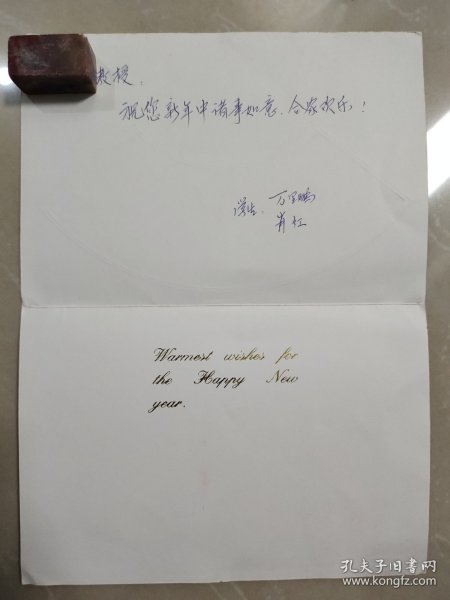 教授：
祝您新年中诸事如意、合家欢乐！
学生：万里鹏
肖红
Warmest wishes for
the Happy New
year.
孔夫子旧书网
www.kongfz.com